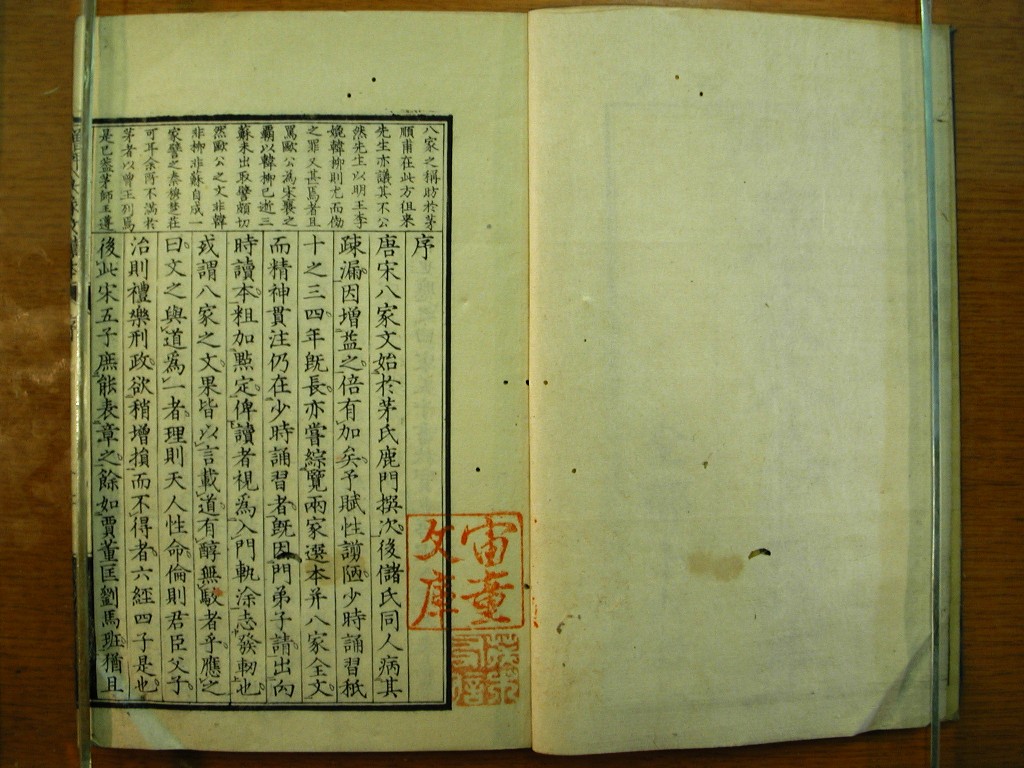 八家之稱昉於茅
順甫在此方徂來
先生亦議其不公
然先生以明王李
媲韓柳則尤而傚
之罪又甚焉者且
罵歐公爲宋襄之
霸以韓柳已逝三
蘇未出取譬頗切
然歐公之文非韓
非柳非蘇自成一
家譬之秦楚在
可耳余所不滿於
茅者以曾王列焉
是已蓋茅師王遵
序
唐宋八家文始於茅氏鹿門撰次後儲氏同人病其
疎漏因增益之倍有加矣予賦性謭陋少時誦習秖
十之三四年既長亦嘗綜覽兩家選本并八家全文
而精神貫注仍在少時誦習者既因門弟子請出向
時讀本粗加點定俾讀者視爲入門軌涂志發軔也
或謂八家之文果皆以言載道有醇無駁者乎應之
曰文之與道爲一者理則天人性命倫則君臣父子
治則禮樂刑政欲稍增損而不得者六經四子是也
後此宋五子庶能表章之餘如賈董匡劉馬班猶且
宙童
文庫